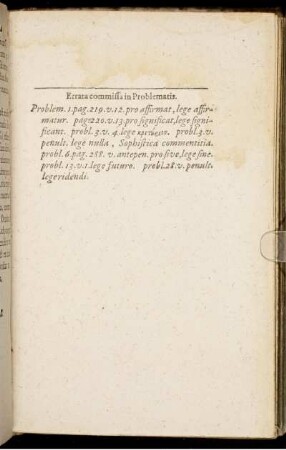 Errata commissa in Problematis.
Problem. 1. pag. 219. v. 12. pro affirmat, lege affir-
matur. pag. 220. v. 13. pro significat, lege signi-
ficant. probl. 3. v. 4. lege probl. 3. v.
penult. lege nulla, Sophistica commentitia.
probl. 6. pag. 238. v. antepen. pro sive, lege sine.
probl. 13. v. 1. lege futuro. probl. 28. v. penult.
lege ridendi.